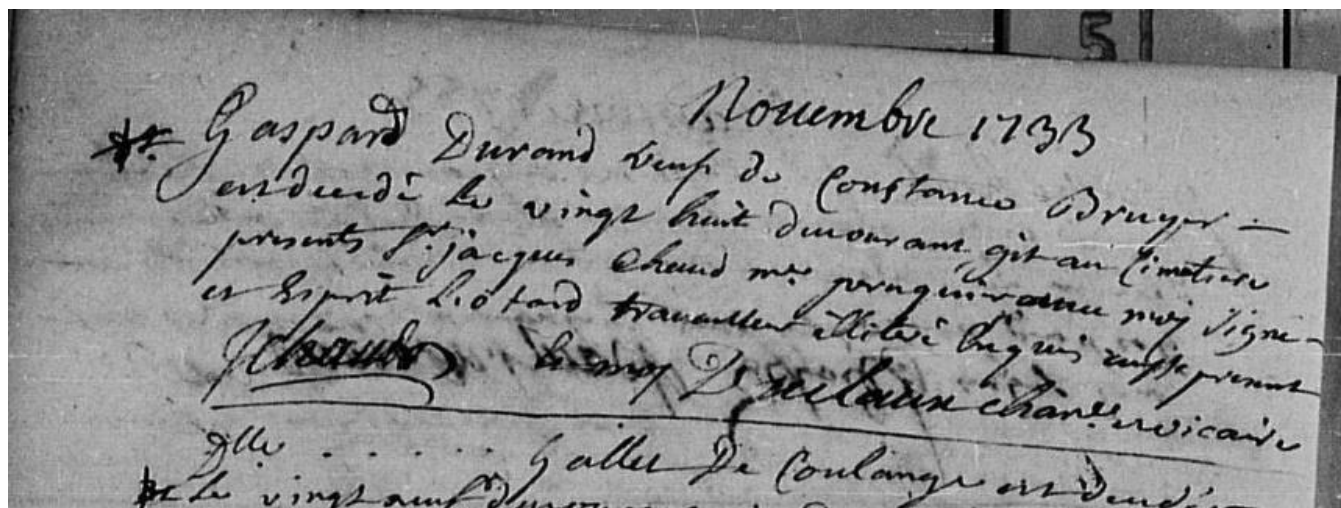 5
Novembre 1733
Gaspard Durand veuf de Constance Bruyer
est decedé le vingt huit du courant git au Cimetiere
presents Sr. jacques Chaud me. perruquier avec moy signé
et Esprit Liotard travailleur illiteré
JChaud chane. et vicaire
Dlle . . . . . . Gallet De Coulange est decedée
Le vingt neuf du